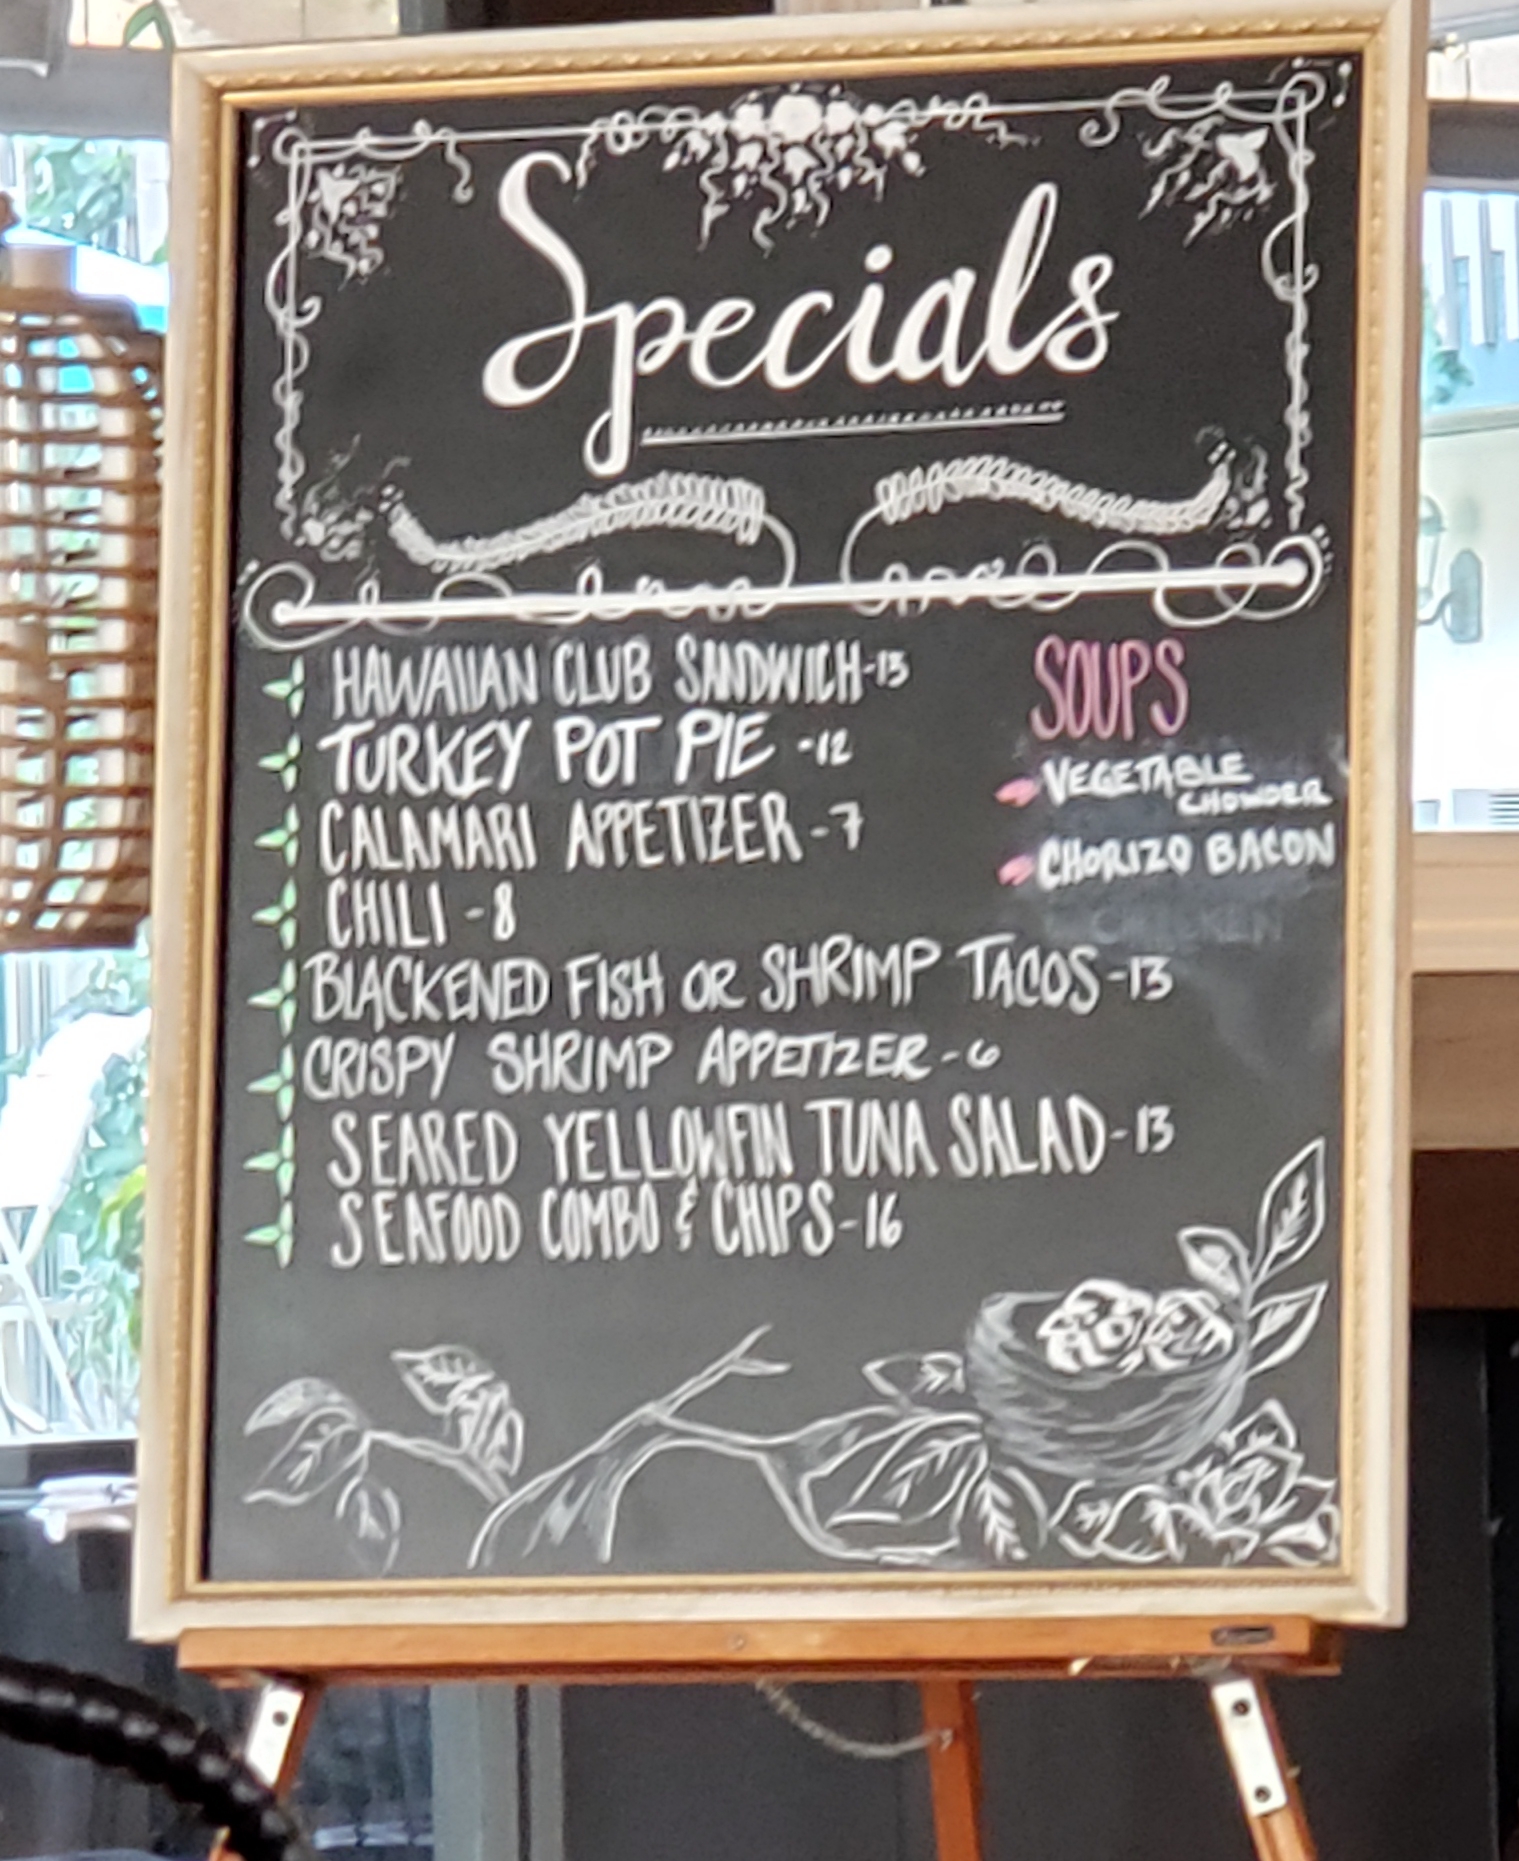 Specials
HAWAIIAN CLUB SANDWICH-13
TURKEY POT PIE -12
CALAMARI APPETIZER-7
CHILI -8
BLACKENED FISH OR SHRIMP TACOS-13
CRISPY SHRIMP APPETIZER-6
SEARED YELLOWFIN TUNA SALAD-13
SEAFOOD COMBO & CHIPS-16
SOUPS
VEGETABLE
CHOWDER
CHORIZO BACON